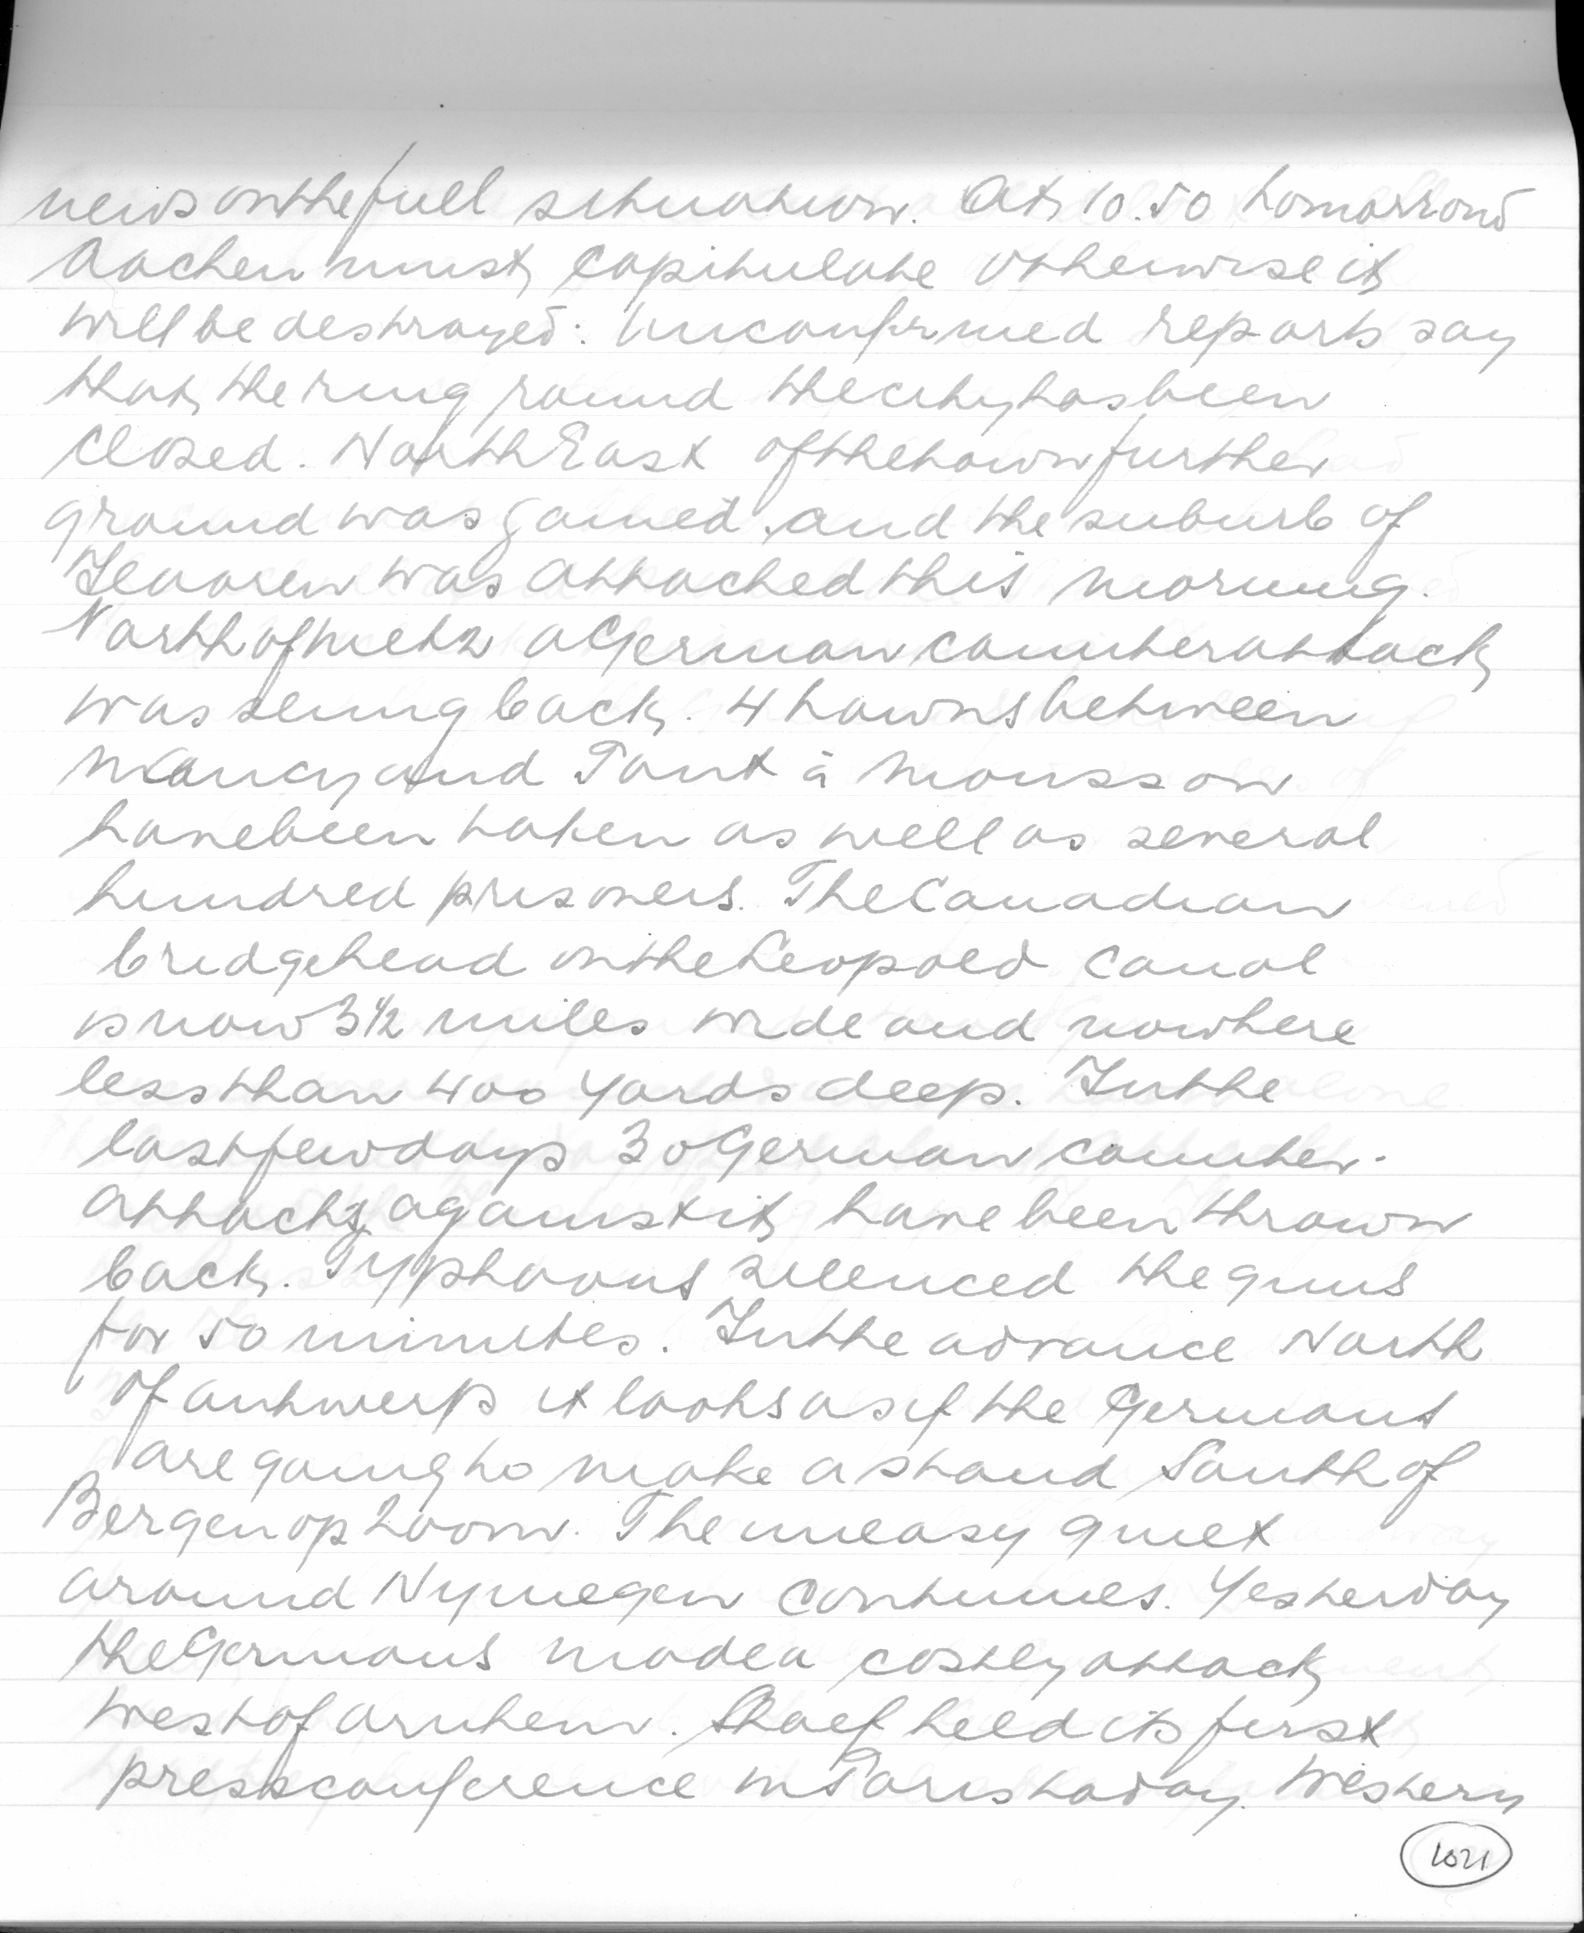 news on the fuel situation. At 10.50 tomorrow
Aachen must capitulate otherwise it
will be destroyed: Unconfirmed reports say
that the ring round the city has been
closed. North East of the town further
ground was gained and the suburb of
was attacked this morning.
North of Metz a German counterattack
was flung back. 4 towns between
Nancy and Pont à Mousson
have been taken as well as several
hundred prisoners. The Canadian
bridgehead on the Leopold Canal
is now 3½ miles wide and nowhere
less than 400 yards deep. In the
last few days 30 German counter-
attacks against it have been thrown
back. Typhoons silenced the guns
for 50 minutes. In the advance North
of Antwerp it looks as if the Germans
are going to make a stand South of
Bergen op Zoom. The uneasy quiet
around Nymegen continues. Yesterday
the Germans made a costly attack
West of Arnhem. Shaef held its first
press conference in Paris today. Western
1021